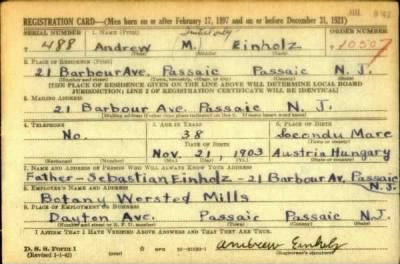 REGISTRATION CARD—(Men born on or after February 17, 1897 and on or before December 31, 1921)
SERIAL NUMBER 1. NAME (Print) Initial only ORDER NUMBER
488 Andrew M. Einholz 10507
2. PLACE OF RESIDENCE (Print)
21 Barbour Ave. Passaic Passaic N. J.
(Number and street) (Town, township, village, or city) (County) (State)
[THE PLACE OF RESIDENCE GIVEN ON THE LINE ABOVE WILL DETERMINE LOCAL BOARD
JURISDICTION; LINE 2 OF REGISTRATION CERTIFICATE WILL BE IDENTICAL]
3. MAILING ADDRESS
21 Barbour Ave. Passaic N. J.
[Mailing address if other than place indicated on line 2. If same insert word same]
4. TELEPHONE 5. AGE IN YEARS 6. PLACE OF BIRTH
No. 38 Secondu Mare
DATE OF BIRTH (Town or county)
Nov. 21, 1903 Austria Hungary
(Exchange) (Number) (Mo.) (Day) (Yr.) (State or country)
7. NAME AND ADDRESS OF PERSON WHO WILL ALWAYS KNOW YOUR ADDRESS
Father - Sebastian Einholz - 21 Barbour Av. Passaic
N. J.
8. EMPLOYER'S NAME AND ADDRESS
Botany Worsted Mills
9. PLACE OF EMPLOYMENT OR BUSINESS
Dayton Ave. Passaic Passaic N.J.
(Number and street or R. F. D. number) (Town) (County) (State)
I AFFIRM THAT I HAVE VERIFIED ABOVE ANSWERS AND THAT THEY ARE TRUE.
D. S. S. Form 1
(Revised 1-1-42) GPO Andrew Einholz